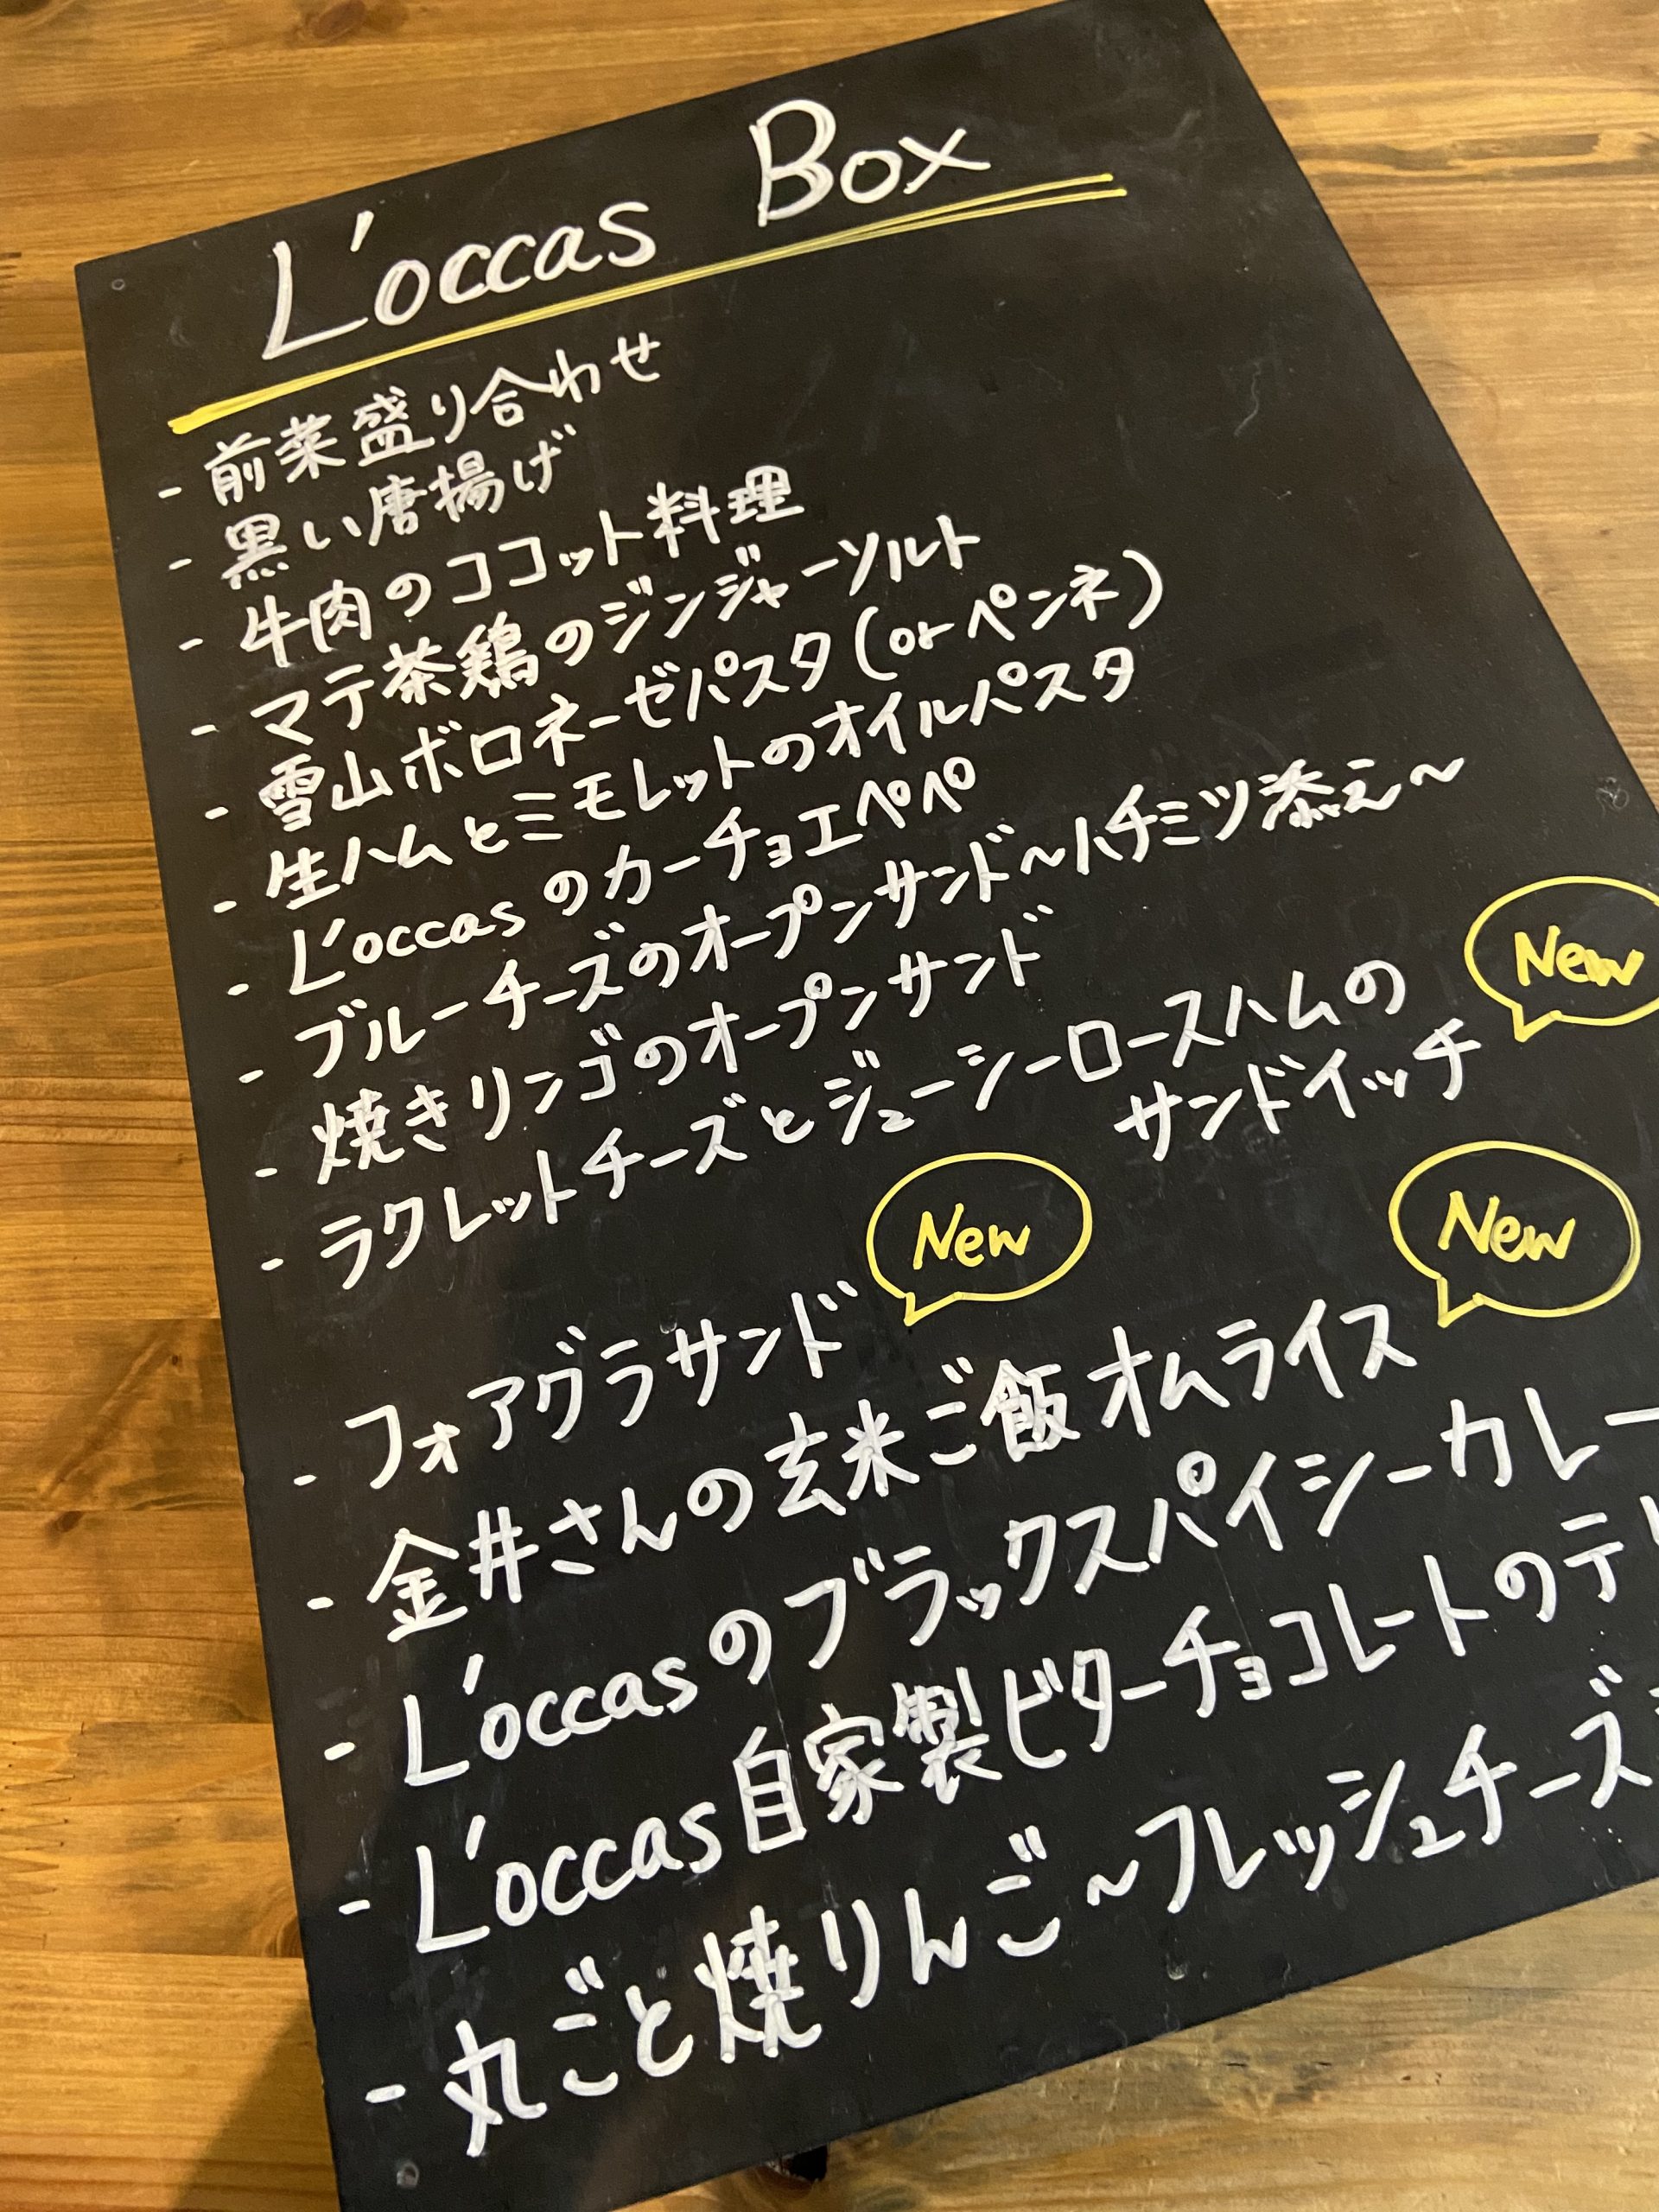 L'occas Box
- 前菜盛り合わせ
- 黒い唐揚げ
- 牛肉のココット料理
- マテ茶鶏のジンジャーソルト
- 雪山ボロネーゼパスタ(orペンネ)
- 生ハムとミモレットのオイルパスタ
- L'occasのカーチョエペペ
- ブルーチーズのオープンサンド〜ハチミツ添え〜
- 焼きリンゴのオープンサンド
- ラクレットチーズとジューシーロースハムの
サンドイッチ
New
- フォアグラサンド
New
- 金井さんの玄米ご飯オムライス
New
- L'occasのブラックスパイシーカレー
- L'occas自家製ビターチョコレートのテ
- 丸ごと焼りんご〜フレッシュチーズ